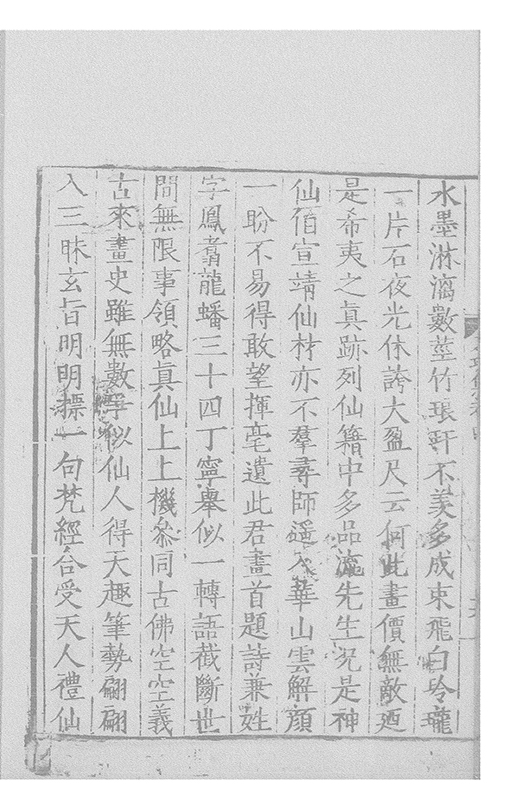 水墨淋漓數莖竹琅玕不羨多成束飛白玲瓏
一片石夜光休誇大盈尺云何此畫價無敵廼
是希夷之真跡列仙籍中多品流先生況是神
仙伯宣靖仙材亦不羣尋師遥入華山雲解顏
一盼不易得敢望揮毫遺此君畫首題詩兼姓
字鳳翥龍蟠三十四丁寧舉似一轉語截斷世
間無限事領略真仙上上機叅同古佛空空義
古來畫史雖無數爭似仙人得天趣筆勢翩翩
入三昧玄旨明明標一句梵經合受天人禮仙